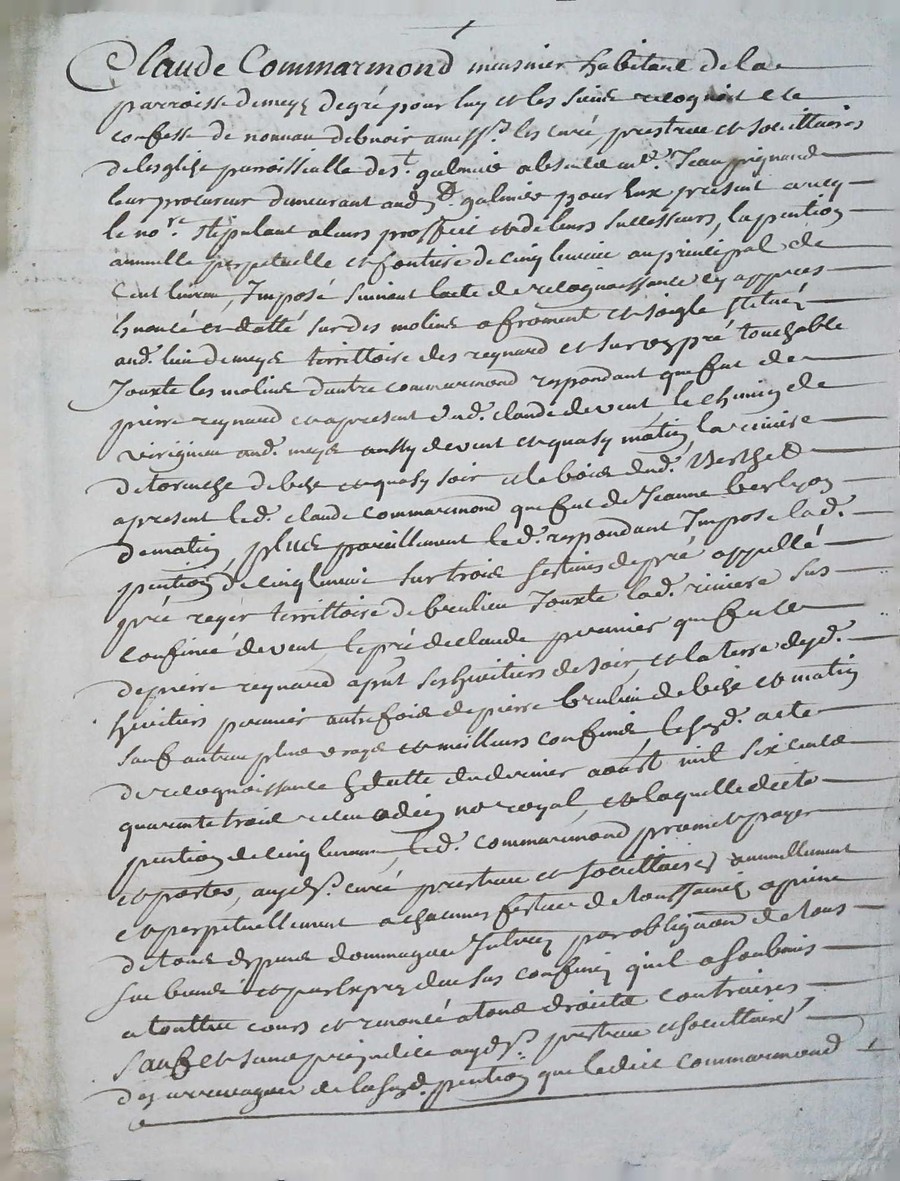 Claude Commarmond meusnier habitant de la
parroisse de meys de gré pour luy et les siens recognoit et
confesse de nouveau debvoir a mess.rs les curé prestres et societtaires
de l'esglise parroissialle de s.t galmier absents m.e Jean pignard
leur procureur demeurant aud. s.t galmier pour eux present avecq
le no.re stipulant a leurs proffict et de leurs successeurs, la pention
annuelle perpetuelle et fontiere de cinq livres au principal de
cent livres, Imposé suivant l'acte de recognoissance cy appres
enoncé et datté sur des molins a froment et soigle scitués
aud. lieu de meys territtoire des reynard et sur un pré touchable
Jouxte les molins d'autre commarmond respondant que fut de
pierre reynaud et a present dud. claude de vent le chemin de
virigneu aud. meys aussy de vent et quasy matin la riviere
de toranche de bize et quasy soir et le bois dud.
a present led. claude commarmond que fut de Jeanne berlyon
de matin plus pareillement led. respondant Impose lad.
pention de cinq livres sur trois de pré appellé
pré royer territtoire de brulieu Jouxte lad. riviere sus
confinée de vent le pré de claude que fut
de pierre reynard a p.nt ses heritiers de soir, et la terre desd.
heritiers autrefois de pierre brulieu de bize et matin
sauf autres plus vrays et meilleurs confins le susd. acte
de recognoissance en datte du dernier aoust mil six cents
quarante trois receu no.re royal, et laquelle dicte
pention de cinq livres led. commarmond promet payer
et porter, ausd.s curé prestres et societtaires annuellement
et perpetuellement a chacunes festes de toussaincts a peine
de tous despens dommages Interests par obligaon de tous
ses biens et par exprez des sus confinés qu'il a soubmis
a touttes cours et renoncé a tous droicts contraires
sauf et sans prejudice ausd.s prestres et societtaires
des arrerages de la susd. pention que ledict commarmond